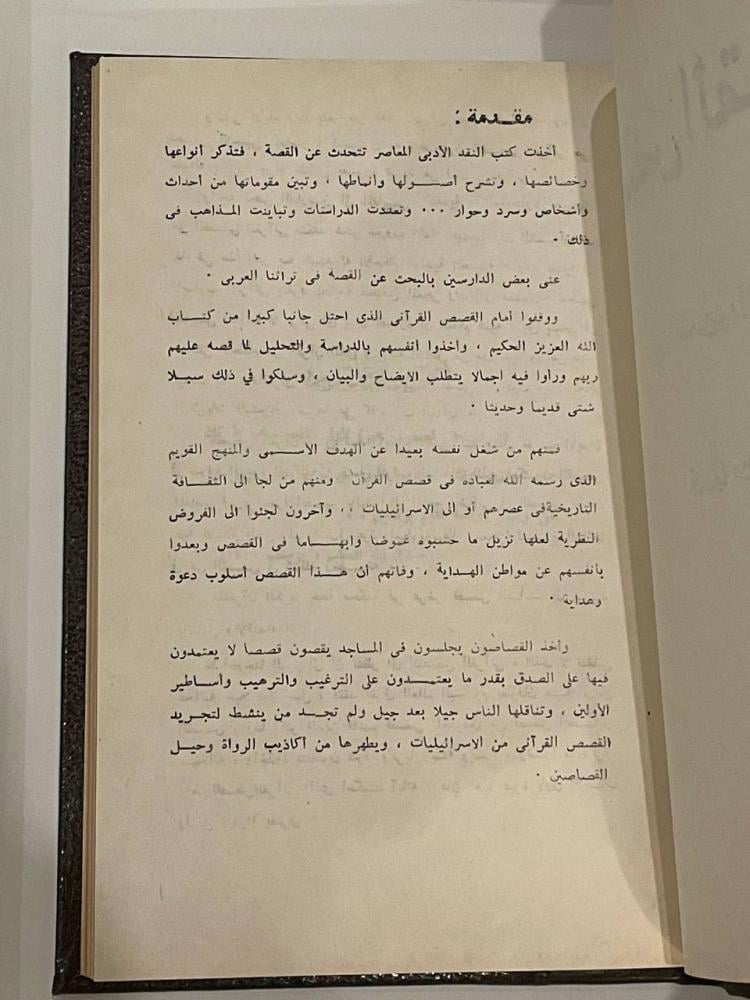 مقدمة :
أخذت كتب النقد الأدبى المعاصر تتحدث عن القصة ، فتذكر أنواعها
وخصائصها ، وتشرح أصولها وأنماطها ، وتبين مقوماتها من أحداث
وأشخاص وسرد وحوار ٠٠٠ وتعددت الدراسات وتباينت المذاهب فى
ذلك ٠
عنى بعض الدارسين بالبحث عن القصة فى تراثنا العربى ٠
ووقفوا أمام القصص القرآنى الذى احتل جانبا كبيرا من كتاب
الله العزيز الحكيم ، وأخذوا أنفسهم بالدراسة والتحليل لما قصه عليهم
ربهم ورأوا فيه اجمالا يتطلب الايضاح والبيان ، وسلكوا في ذلك سبلا
شتى قديما وحديثا ٠
فمنهم من شغل نفسه بعيدا عن الهدف الأسمى والمنهج القويم
الذى رسمه الله لعباده فى قصص القرآن ومنهم من لجا الى الثقافة
التاريخيةفى عصرهم أو الى الاسرائيليات ٠٠ وآخرون لجئوا الى الفروض
النظرية لعلها تزيل ما حسبوه غموضا وابهاما فى القصص وبعدوا
بأنفسهم عن مواطن الهداية ، وفاتهم أن هذا القصص أسلوب دعوة
وهداية ٠
وأخذ القصاصون يجلسون فى المساجد يقصون قصصا لا يعتمدون
فيها على الصدق بقدر ما يعتمدون على الترغيب والترهيب وأساطير
الأولين ، وتناقلها الناس جيلا بعد جيل ولم تجد من ينشط لتجريد
القصص القرآنى من الاسرائيليات ، ويطهرها من أكاذيب الرواة وحيل
القصاصين ٠